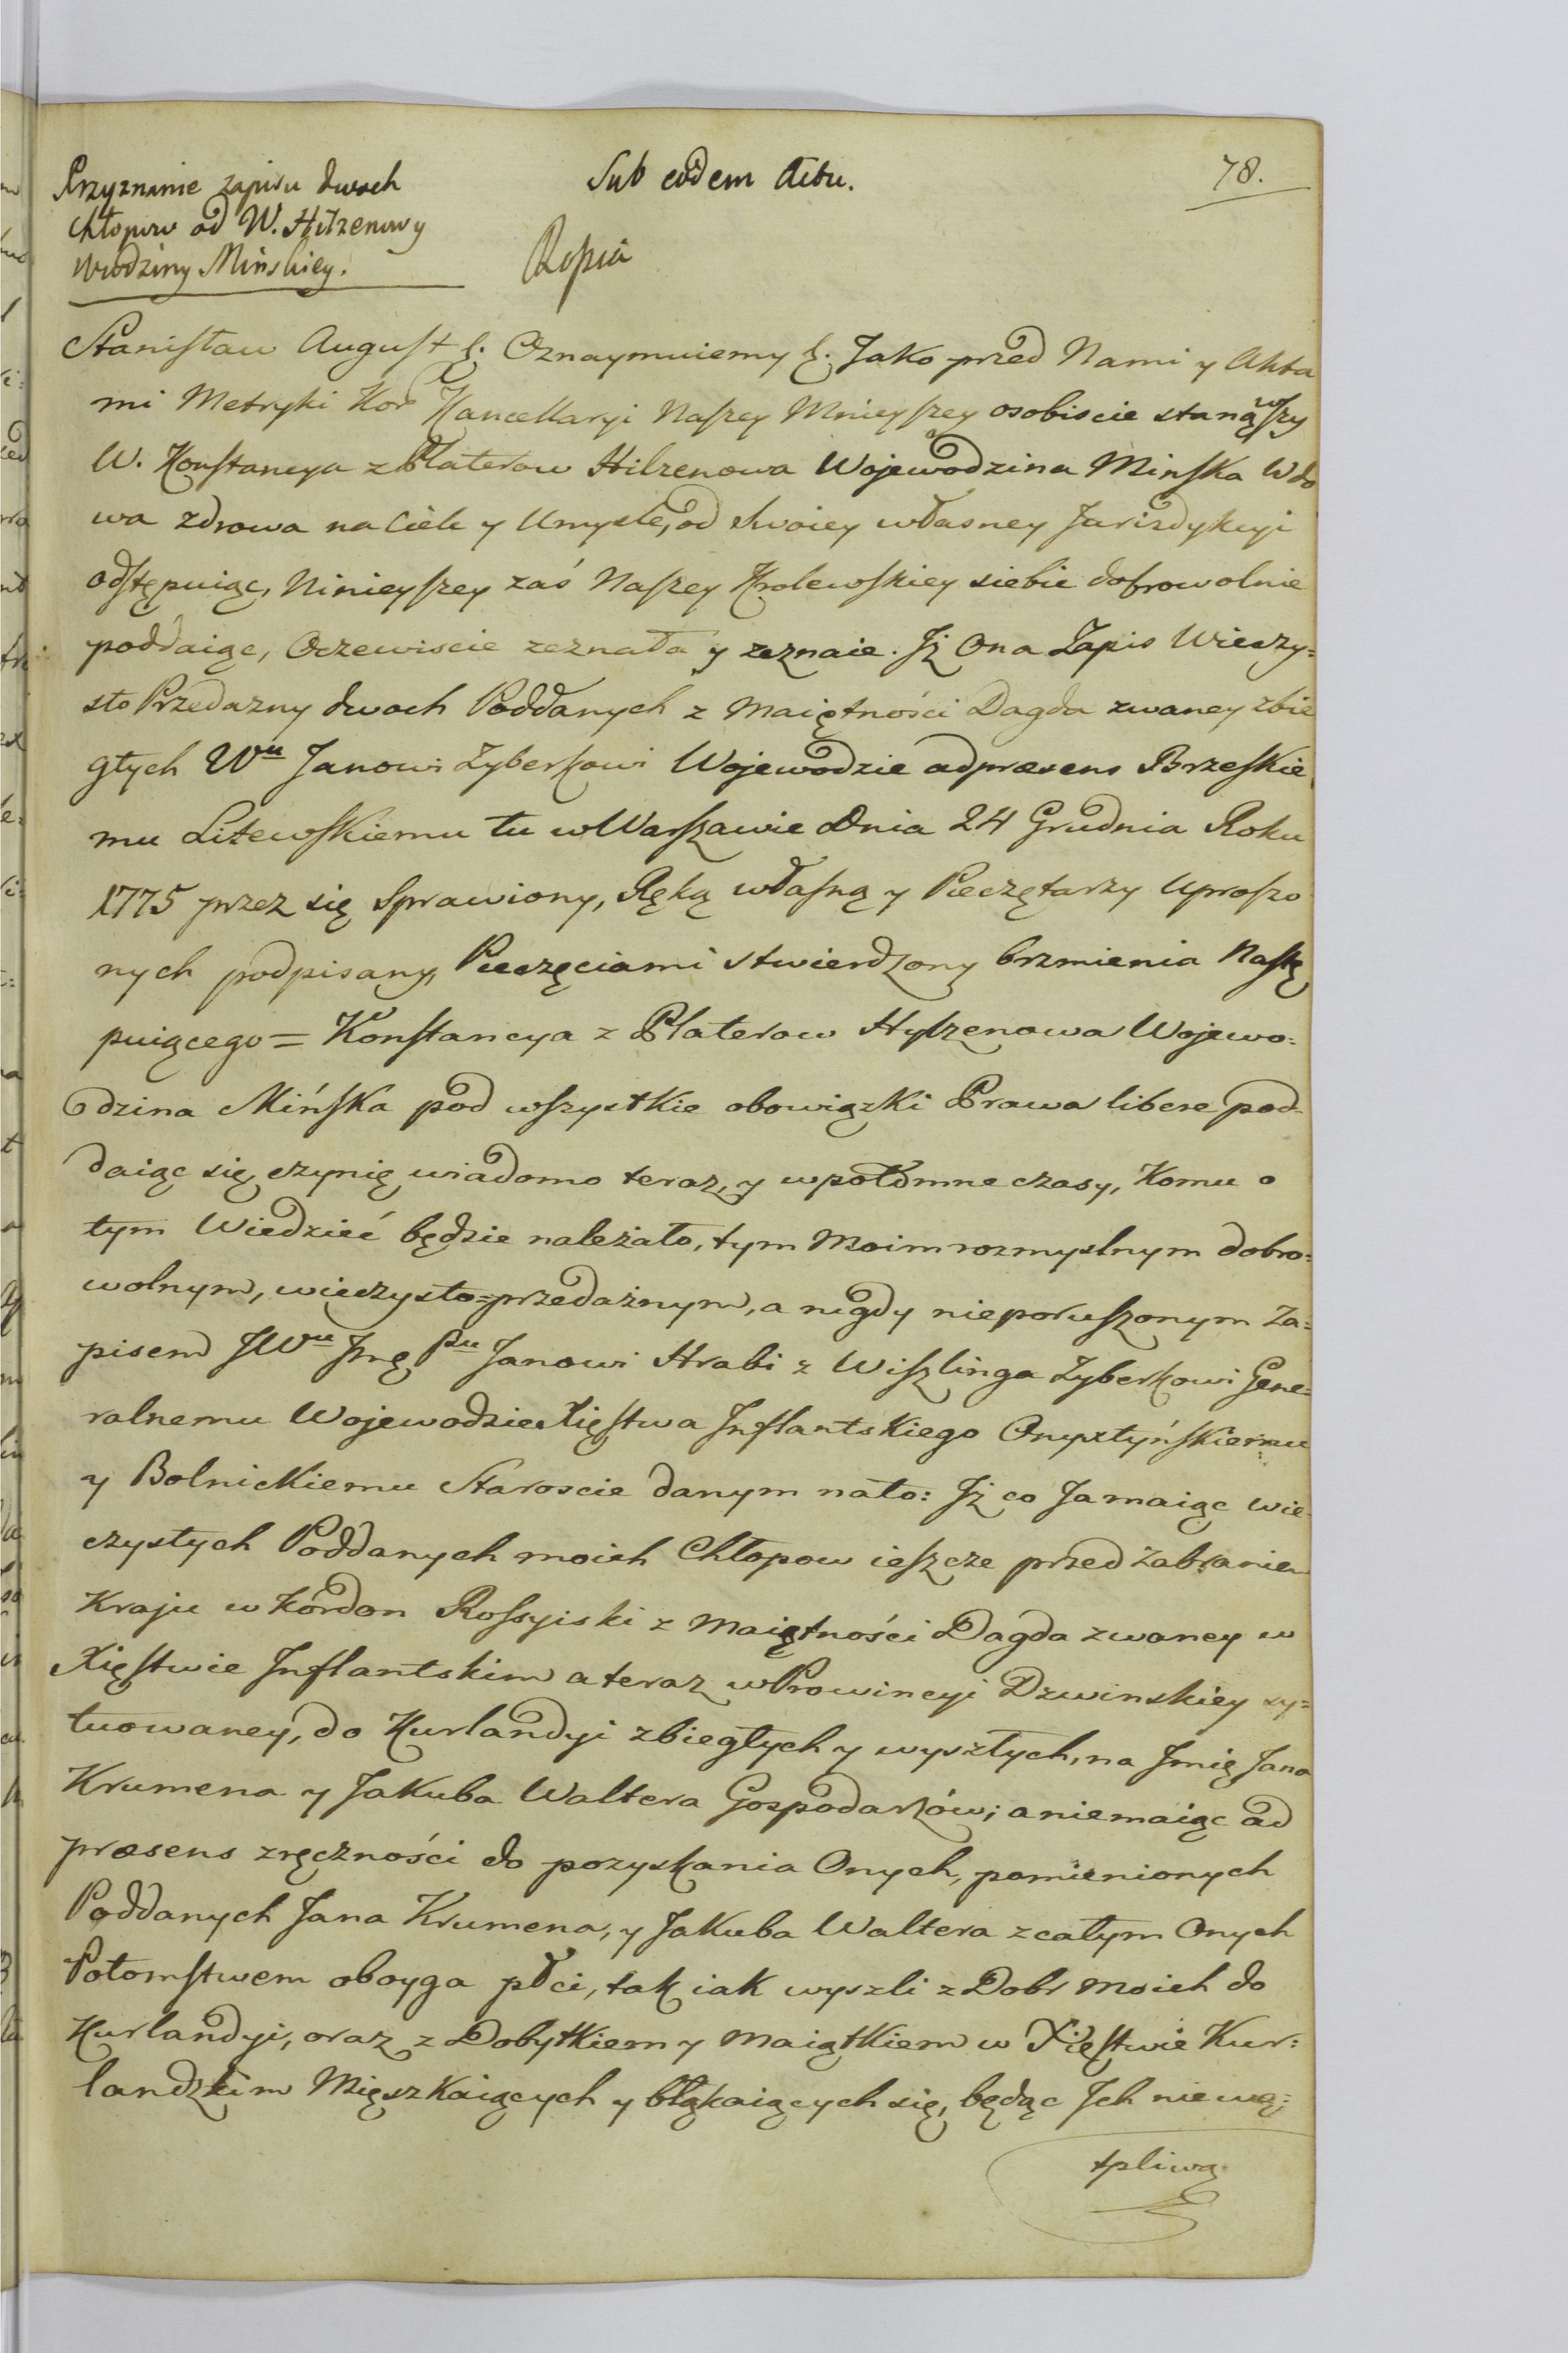 Przyznanie zapisu dwoch
Chłopow od W. Hilzenowy
Wwodziny Mińskiey.
Sub eodem Actu.
78.
Kopia
Stanisław August &. Oznaymuiemy &. Jako przed Nami y Akta
mi Metryki Kor Kancellaryi Naszey Mnieyszey osobiscie stanąwszy
W. Konstancya z Platerow Hilzenowa Wojewodzina Minska Wdo
wa zdrowa na Ciele y Umysle, od swoiey własney Jurizdykcyi
odstępuiąc, Ninieyszey zaś Naszey Krolewskiey siebie dobrowolnie
poddaiąc, Oczewiscie zeznała y zeznaie. Jż Ona Zapis Wieczy=
sto Przedazny dwoch Poddanych z Maiętności Dagda zwaney zbie
głych Wu Janowi Zyberkowi Wojewodzie adpræsens Brzeskie
mu Litewskiemu tu w Warszawie Dnia 24 Grudnia Roku
1775 przez się Sprawiony, Ręką własną y Pieczętarzy Uproszo
nych podpisany, Pieczęciami stwierdzony brzmienia Nastę
puiącego = Konstancya z Platerow Hylzenowa Wojewo=
dzina Mińska pod wszystkie obowiązki Prawa libere pod=
daiąc się czynię wiadomo teraz, y wpotomne czasy, Komu o
tym Wiedzieć będzie należało, tym Moim rozmyslnym dobro=
wolnym, wieczysto=przedażnym, a nigdy nieporuszonym Za=
pisem JWu Jmę Pu Janowi Hrabi z Wiszlinga Zyberkowi Gene=
ralnemu Wojewodzie Xięstwa Inflantskiego Onyxtyńskiemu
y Bolnickiemu Staroscie danym nato: Jż co Ja maiąc wie
czystych Poddanych moich Chłopow ieszcze przed zabraniem
Kraju w Kordon Rossyiski z Maiętności Dagda zwaney w
Xięstwie Inflantskim a teraz w Prowincyi Dzwinskiey sy=
tuowaney, do Kurlandyi zbiegłych y wyszłych, na Jmię Jana
Krumena y Jakuba Waltera Gospodarzów; a niemaiąc ad
præsens zręczności do pozyskania Onych, pomienionych
Poddanych Jana Krumena, y Jakuba Waltera z całym Onych
Potomstwem oboyga płci, tak iak wyszli z Dobr Moich do
Kurlandyi, oraz z Dobytkiem y Maiątkiem w Xięstwie Kur=
landzkim Mięszkaiących y błąkaiących się, będąc Jch niewą=
tpliwą